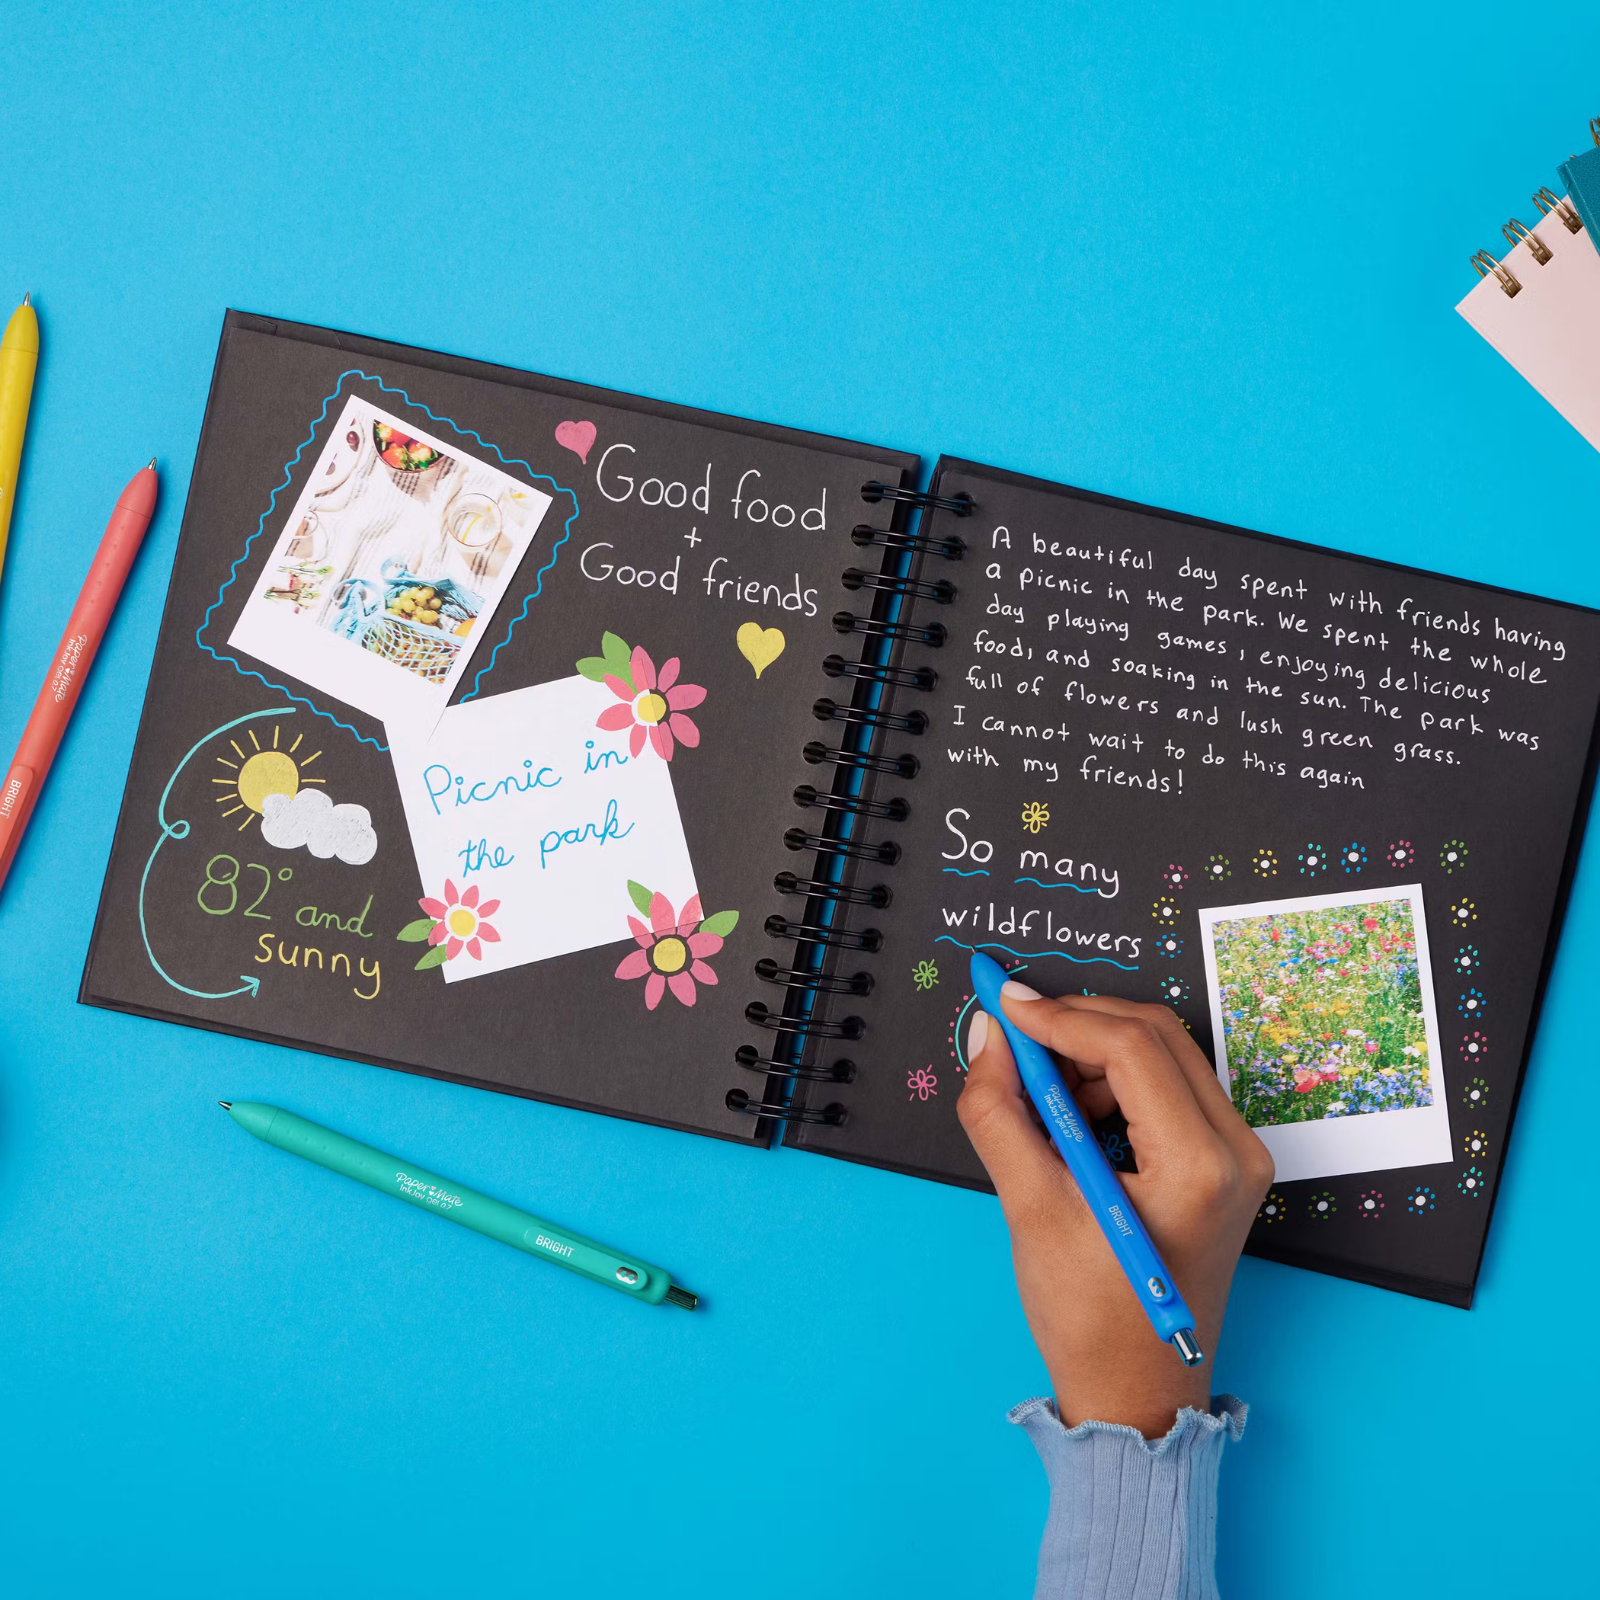 Good food
+
Good friends
Picnic in
the park
82° and
sunny
A beautiful day spent with friends having
a picnic in the park. We spent the whole
day playing games, enjoying delicious
food, and soaking in the sun. The park was
full of flowers and lush green grass.
I cannot wait to do this again
with my friends!
So many
wildflowers
Paper Mate
InkJoy gel 0.7
BRIGHT
Paper Mate
InkJoy gel 0.7
BRIGHT
Paper Mate
InkJoy gel 0.7
BRIGHT